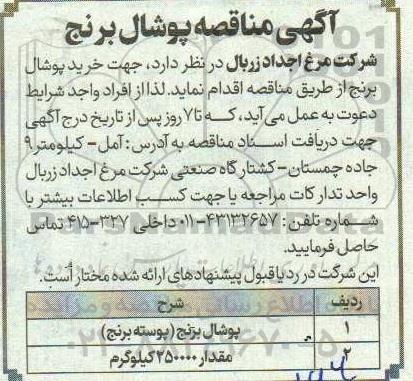 آگهی مناقصه پوشال برنج
شرکت مرغ اجداد زربال در نظر دارد، جهت خرید پوشال
برنج از طریق مناقصه اقدام نماید. لذا از افراد واجد شرایط
دعوت به عمل می‌آید، که تا ۷ روز پس از تاریخ درج آگهی
جهت دریافت اسناد مناقصه به آدرس: آمل - کیلومتر ۹
جاده چمستان - کشتارگاه صنعتی شرکت مرغ اجداد زربال
واحد تدارکات مراجعه یا جهت کسب اطلاعات بیشتر با
شماره تلفن: ۴۳۱۳۲۶۵۷-۰۱۱ داخلی ۳۲۷-۴۱۵ تماس
حاصل فرمایید.
این شرکت در رد یا قبول پیشنهادهای ارائه شده مختار است.
ردیف شرح
۱ پوشال برنج (پوسته برنج)
۲ مقدار ۲۵۰۰۰۰ کیلوگرم